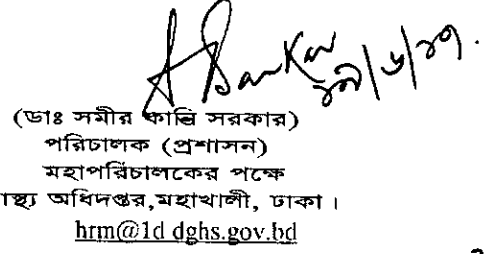 A Sarkar
(ডাঃ সমীর কান্তি সরকার)
পরিচালক (প্রশাসন)
মহাপরিচালকের পক্ষে
স্থ্য অধিদপ্তর,মহাখালী, ঢাকা ।
hrm@1d dghs.gov.bd